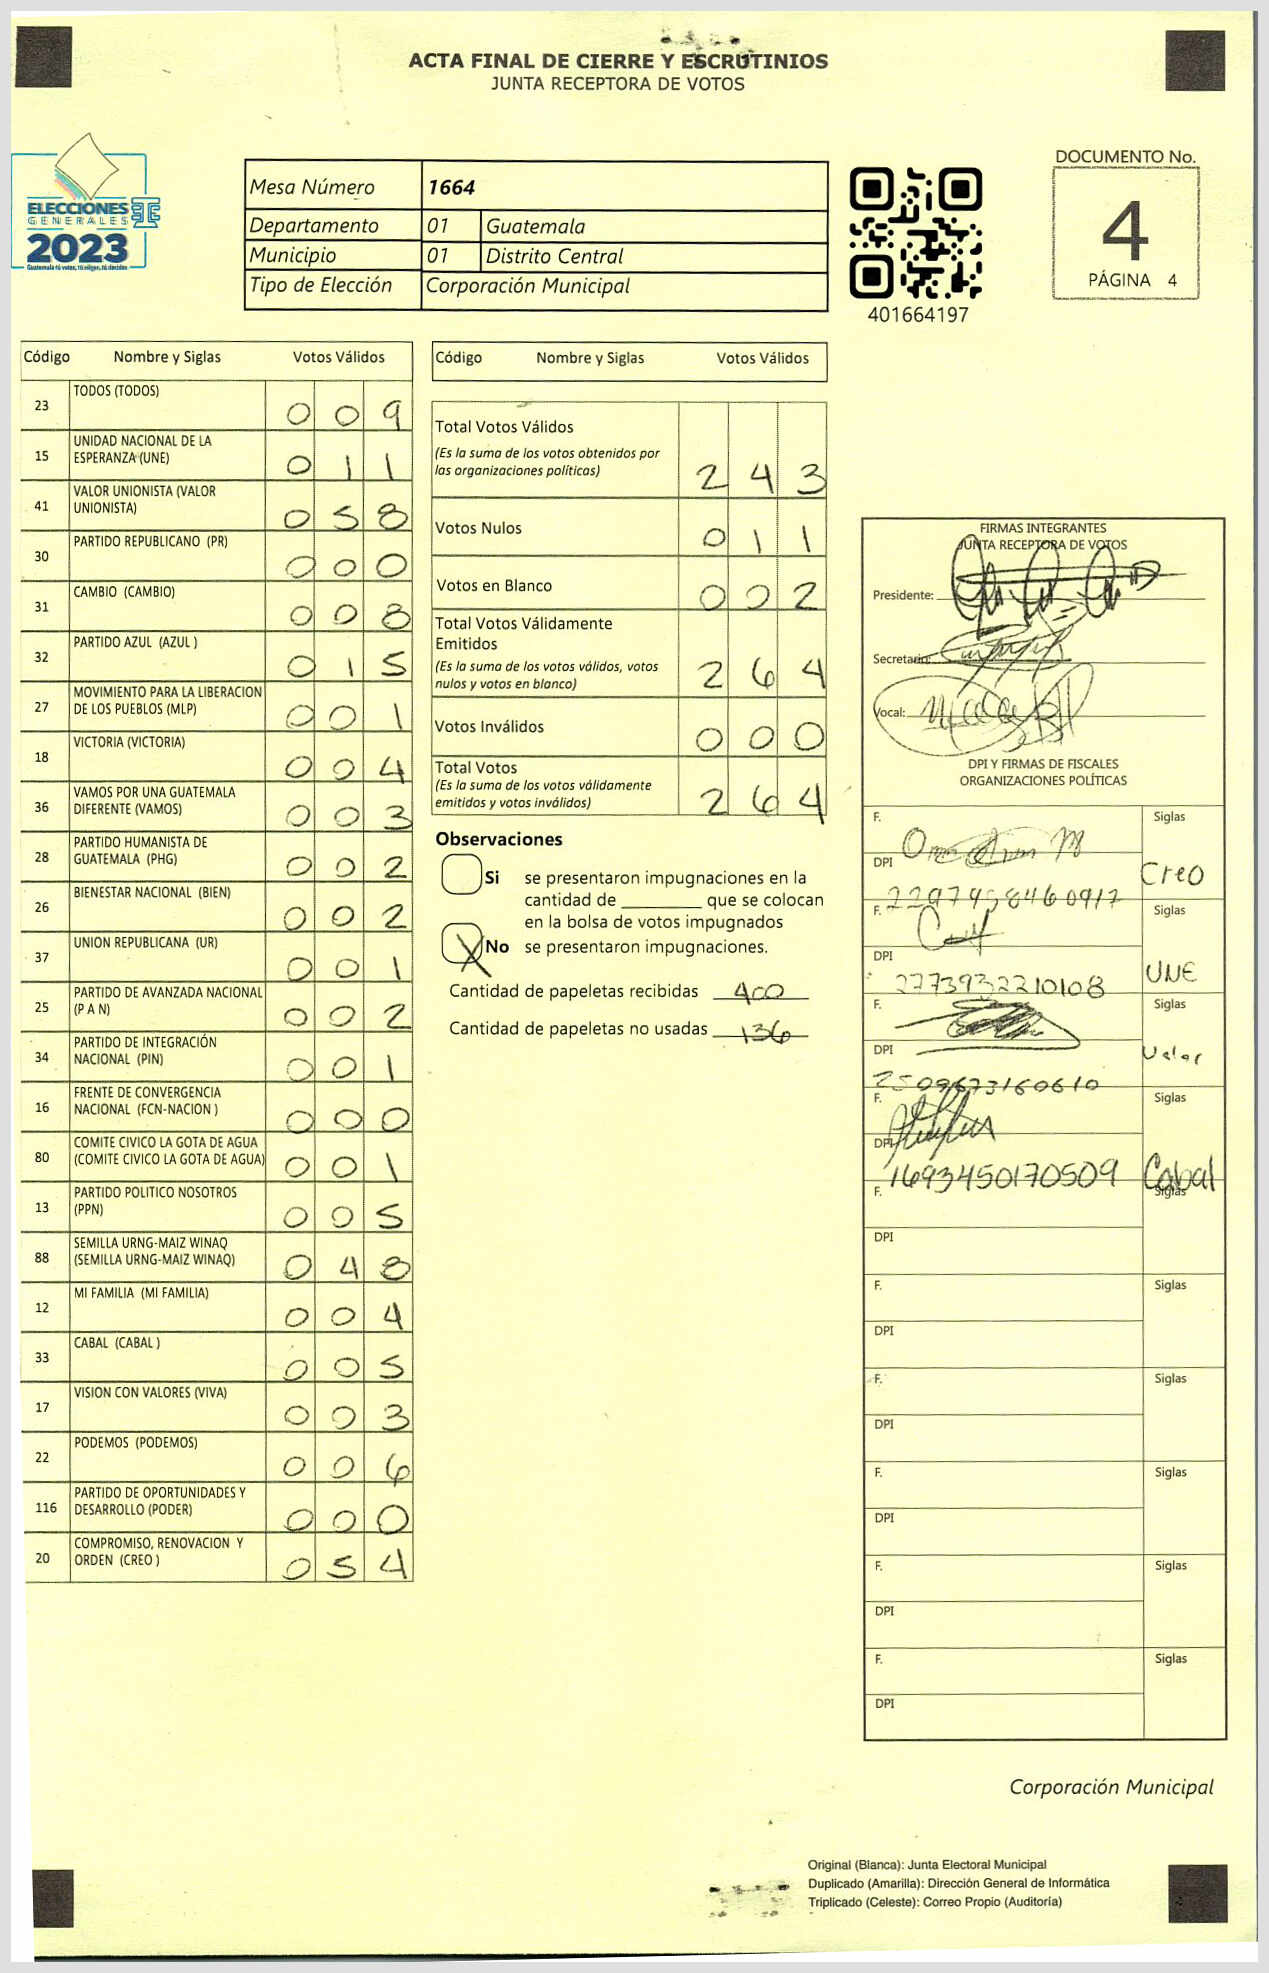 ACTA FINAL DE CIERRE Y ESCRUTINIOS
JUNTA RECEPTORA DE VOTOS
ELECCIONES
GENERALES
2023
Guatemala tú votas, tú eliges, tú decides
Mesa Número 1664
Departamento 01 Guatemala
Municipio 01 Distrito Central
Tipo de Elección Corporación Municipal
401664197
DOCUMENTO No.
4
PÁGINA 4
Código Nombre y Siglas Votos Válidos
23 TODOS (TODOS) 0 0 9
15 UNIDAD NACIONAL DE LA
ESPERANZA (UNE) 0 1 1
41 VALOR UNIONISTA (VALOR
UNIONISTA) 0 5 8
30 PARTIDO REPUBLICANO (PR) 0 0 0
31 CAMBIO (CAMBIO) 0 0 8
32 PARTIDO AZUL (AZUL ) 0 1 5
27 MOVIMIENTO PARA LA LIBERACION
DE LOS PUEBLOS (MLP) 0 0 1
18 VICTORIA (VICTORIA) 0 0 4
36 VAMOS POR UNA GUATEMALA
DIFERENTE (VAMOS) 0 0 3
28 PARTIDO HUMANISTA DE
GUATEMALA (PHG) 0 0 2
26 BIENESTAR NACIONAL (BIEN) 0 0 2
37 UNION REPUBLICANA (UR) 0 0 1
25 PARTIDO DE AVANZADA NACIONAL
(P A N) 0 0 2
34 PARTIDO DE INTEGRACIÓN
NACIONAL (PIN) 0 0 1
16 FRENTE DE CONVERGENCIA
NACIONAL (FCN-NACION ) 0 0 0
80 COMITE CIVICO LA GOTA DE AGUA
(COMITE CIVICO LA GOTA DE AGUA) 0 0 1
13 PARTIDO POLITICO NOSOTROS
(PPN) 0 0 5
88 SEMILLA URNG-MAIZ WINAQ
(SEMILLA URNG-MAIZ WINAQ) 0 4 8
12 MI FAMILIA (MI FAMILIA) 0 0 4
33 CABAL (CABAL ) 0 0 5
17 VISION CON VALORES (VIVA) 0 0 3
22 PODEMOS (PODEMOS) 0 0 6
116 PARTIDO DE OPORTUNIDADES Y
DESARROLLO (PODER) 0 0 0
20 COMPROMISO, RENOVACION Y
ORDEN (CREO ) 0 5 4
Código Nombre y Siglas Votos Válidos
Total Votos Válidos
(Es la suma de los votos obtenidos por
las organizaciones políticas) 2 4 3
Votos Nulos 0 1 1
Votos en Blanco 0 0 2
Total Votos Válidamente
Emitidos
(Es la suma de los votos válidos, votos
nulos y votos en blanco) 2 6 4
Votos Inválidos 0 0 0
Total Votos
(Es la suma de los votos válidamente
emitidos y votos inválidos) 2 6 4
Observaciones
Si se presentaron impugnaciones en la
cantidad de ________ que se colocan
en la bolsa de votos impugnados
X No se presentaron impugnaciones.
Cantidad de papeletas recibidas 400
Cantidad de papeletas no usadas 136
FIRMAS INTEGRANTES
JUNTA RECEPTORA DE VOTOS
Presidente:
Secretario:
Vocal:
DPI Y FIRMAS DE FISCALES
ORGANIZACIONES POLÍTICAS
F. Siglas
DPI Creo
F. Siglas
DPI UNE
2773932210108
F. Siglas
DPI Valor
2509673160610
F. Siglas
DPI
1693450170509 Cabal
F. Siglas
DPI
F. Siglas
DPI
F. Siglas
DPI
F. Siglas
DPI
F. Siglas
DPI
F. Siglas
DPI
Corporación Municipal
Original (Blanca): Junta Electoral Municipal
Duplicado (Amarilla): Dirección General de Informática
Triplicado (Celeste): Correo Propio (Auditoría)